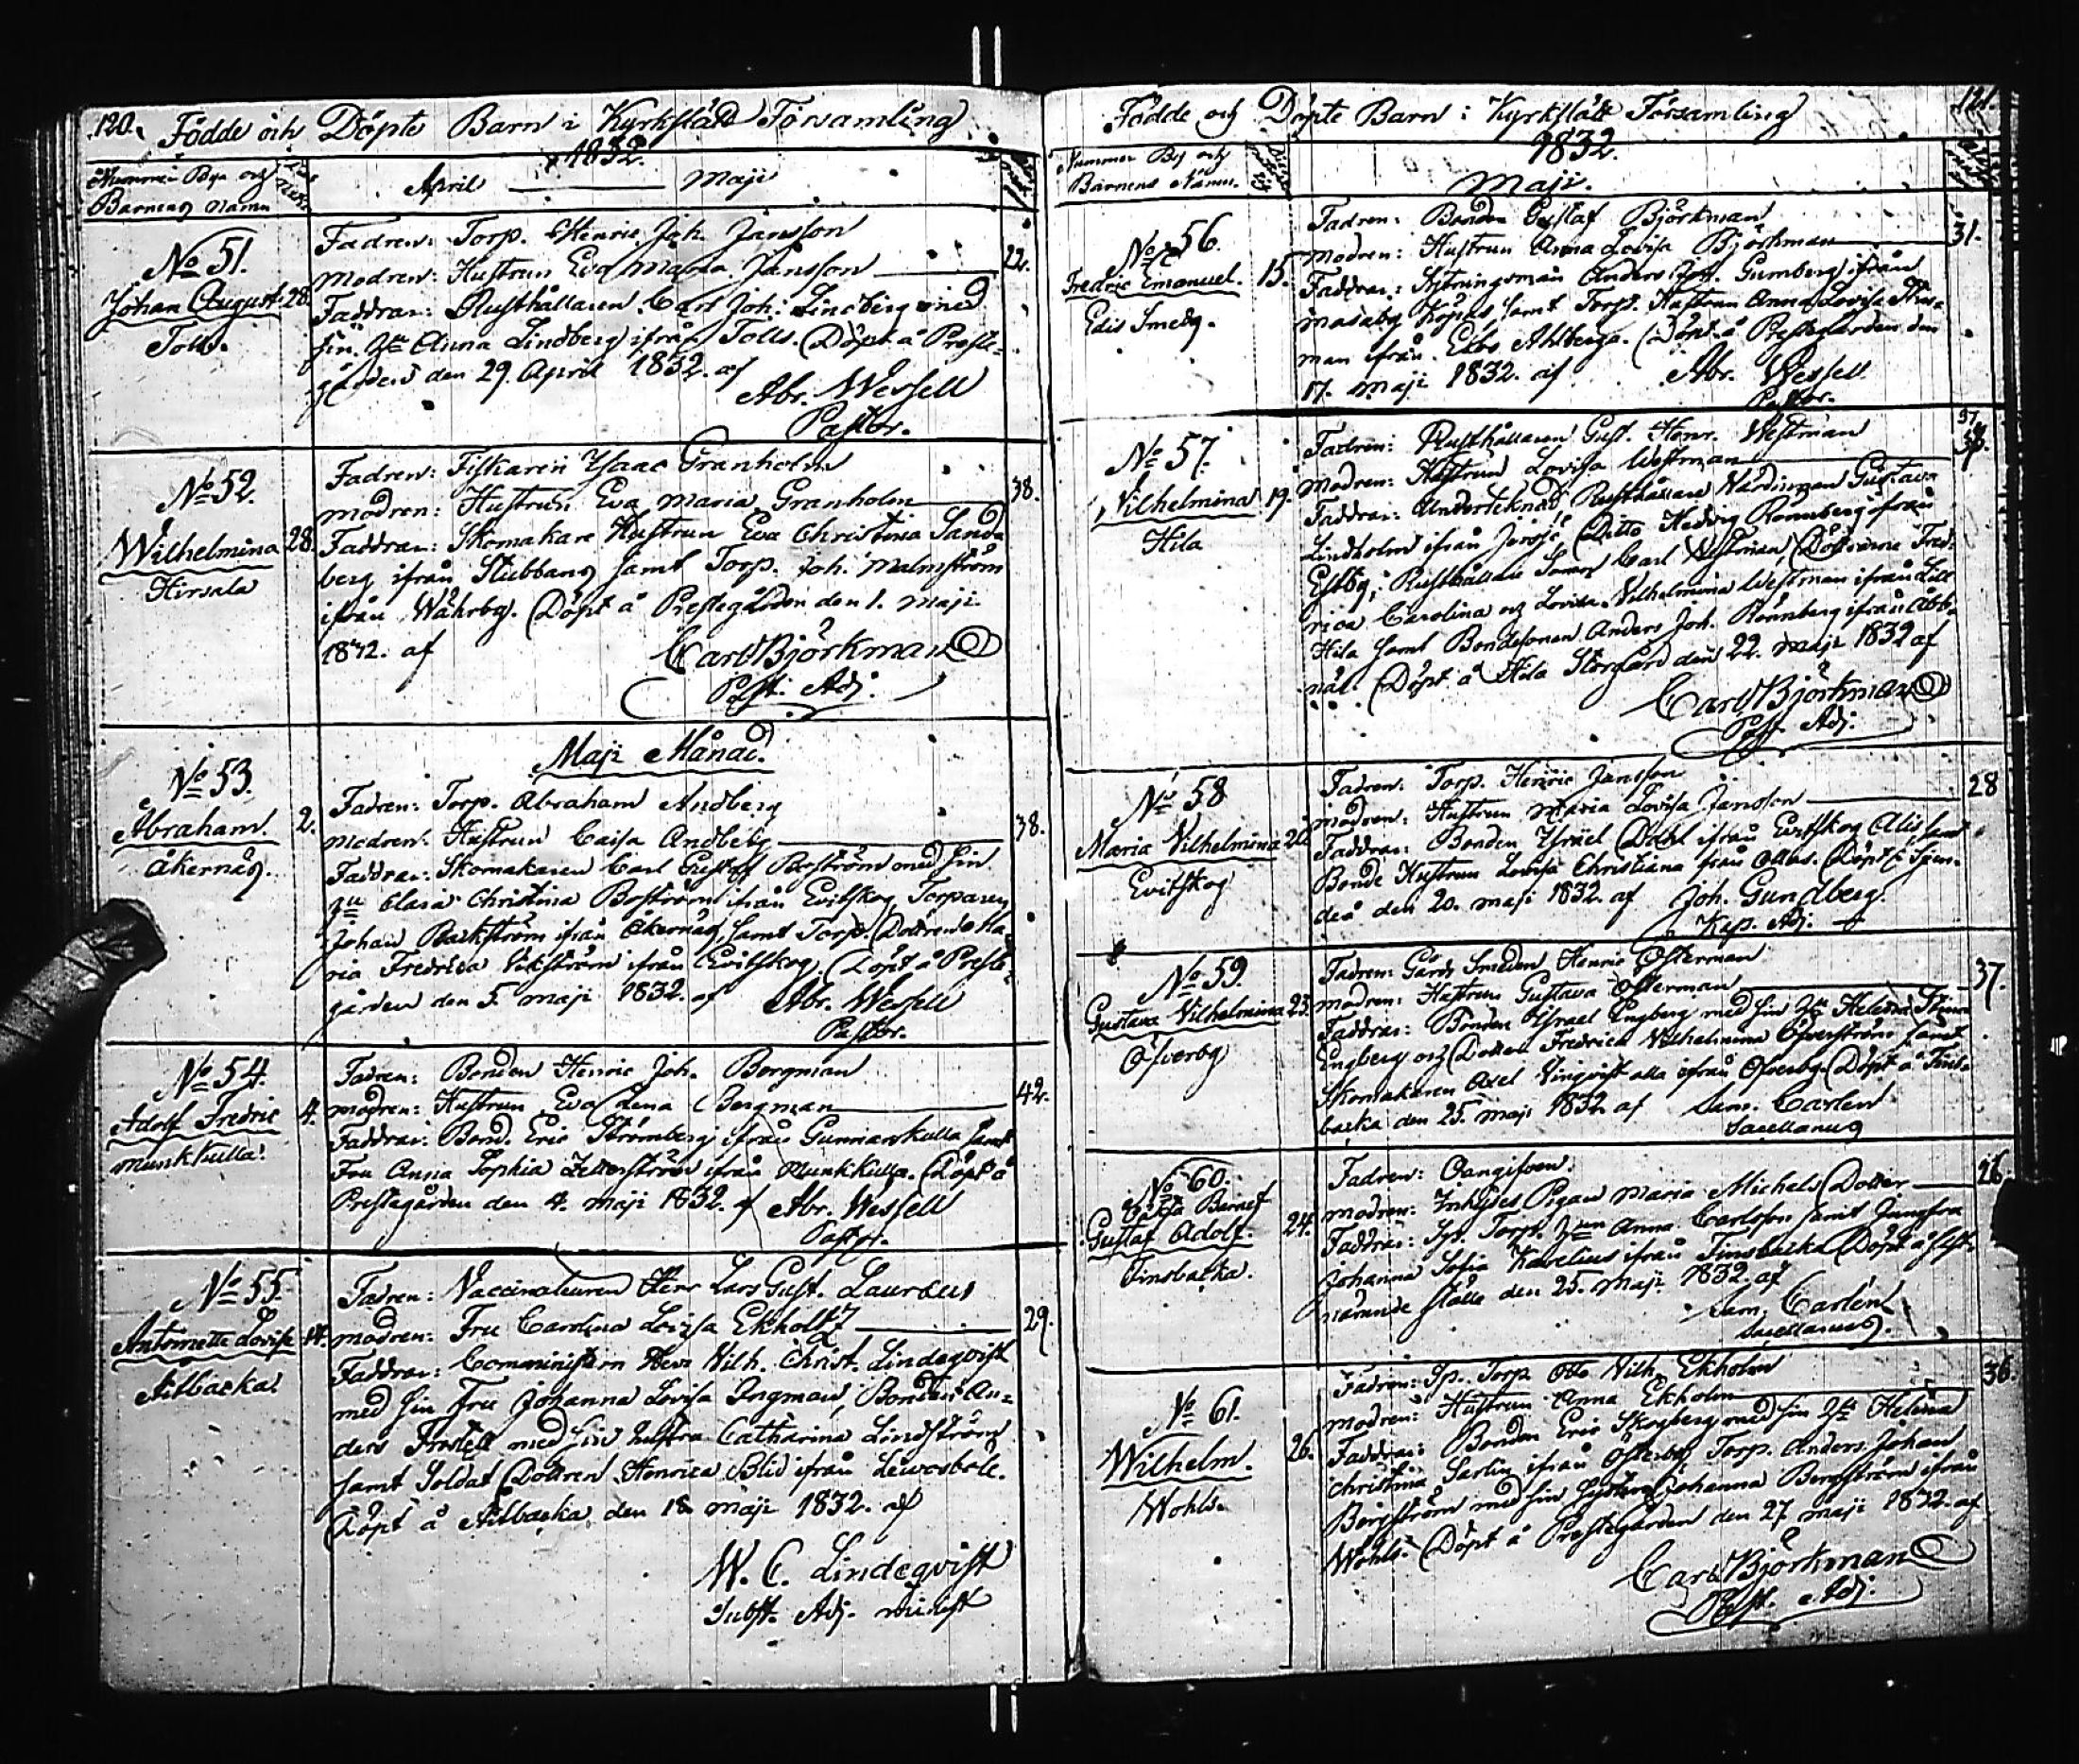 120. Födde och Döpte Barn i Kyrkslätt Församling
1832.
Barnens namn
April — Maji
No 51.
Johan August. 28.
Tolls.
Fadren: Torp. Henric Joh. Jansson
Modren: Hustrun Eva Maria Jansson 22.
Faddrar: Rusthållaren Carl Joh. Lindberg med
sin Hu Anna Lindberg ifrån Tolls. Döpt å Preste-
gården den 29. April 1832. af
Abr. Wessell
Pastor.
No 52.
Wilhelmina 28.
Hirsala
Fadren: Fiskaren Ysaac Granholm
Modren: Hustrun Eva Maria Granholm 38.
Faddrar: Skomakare Hustrun Eva Christina Sand-
berg ifrån Stubbans samt Torp. Joh. Malmström
ifrån Wåhrby. Döpt å Prestegården den 1. Maji
1832. af
Carl Björkman
Past. Adj.
Maji Månad.
No 53.
Abraham. 2.
Åkernäs.
Fadren: Torp. Abraham Andberg
Modren: Hustrun Caisa Andberg 38.
Faddrar: Skomakaren Carl Gustaff Boström med sin
Hu Clara Christina Boström ifrån Evitskog Torparen
Johan Backström ifrån Åkernäs, samt Torp. Dottren Ma-
ria Fredrica Vikström ifrån Evitskog. Döpt å Preste-
gården den 5. Maji 1832. af Abr. Wessell
Pastor.
No 54.
Adolf Fredric 4.
Munkkulla.
Fadren: Bonden Henric Joh. Bergman
Modren: Hustrun Eva Lena Bergman 42.
Faddrar: Bond. Eric Strömberg ifrån Gunnarskulla samt
Fru Anna Sophia Zetterström ifrån Munkkulla. Döpt å
Prestegården den 4. Maji 1832. af Abr. Wessell
Pastor.
No 55.
Antoinette Lovisa 14.
Aitbacka.
Fadren: Vaccinateuren Herr Lars Gust. Laurœus
Modren: Fru Carolina Lovisa Ekholtz 29.
Faddrar: Comministern Herr Wilh. Christ. Lindeqvist
med sin Fru Johanna Lovisa Ingman, Bonden An-
ders Frostell med sin hustru Catharina Lindström
samt Soldat Dottren Henrica Blid ifrån
Döpt å Aitbacka den 18 Maji 1832. af
W. C. Lindeqvist
Subst. Adj. minist
Födde och Döpte Barn i Kyrkslätt Församling 121.
1832.
Nummer By och
Barnens Namn.
Maji.
No 56.
Fredric Emanuel. 15.
Edis Smeds.
Fadren: Bonden Gustaf Björkman
Modren: Hustrun Anna Lovisa Björkman 31.
Faddrar: Anders Joh. Gumberg ifrån
MasabyKöpas samt Torp. Hustrun Anna Lovisa
man ifrån Esbo Ahlberga. Döpt å Prestegården den
17. Maji 1832. af Abr. Wessell
Pastor.
No 57.
Wilhelmina 19.
Hila
Fadren: Rusthållaren Gust. Henr. Westman
Modren: Hustrun Lovisa Westman 37.
Faddrar: Undertecknad, Rusthållare Värdinnan Gustava
Lindholm ifrån Jorfs, Ditto Hedvig Rönnberg ifrån
Estby, Rusthållare Sonen Carl Westman, Döttrarna Fred-
rica Carolina och Lovisa Wilhelmina Westman ifrån Lill
Hila samt Bondesonen Anders Joh. Rönnberg ifrån Åbb-
näs. Döpt å Hila Storgård den 22. Maji 1832 af
Carl Björkman
Past. Adj.
No 58
Maria Vilhelmina 20
Evitskog
Fadren: Torp. Henric Jansson
Modren: Hustrun Maria Lovisa Jansson 28
Faddrar: Bonden Ysrael Dahl ifrån Evitskog Alis samt
Bonde Hustrun Lovisa Christiana från Ollas. Döpt i Sjun-
deå den 20. Maji 1832. af Joh. Gundberg.
Kap. Adj.
No 59.
Gustava Vilhelmina 23.
Öfverby
Fadren: Gårds Smeden Henric Österman
Modren: Hustrun Gustava Österman 37.
Faddrar: Bonden Ysrael Engberg med sin Hu Helena
Engberg och Dotter Fredrica Wilhelmina Öfverström samt
Skomakaren Axel Vinqvist alla ifrån Öfverby. Döpt å Fins-
backa den 25. Maji 1832 af Sam. Carlén
Sacellanus
No 60.
Oäkta Barnet
Gustaf Adolf. 24.
Finsbacka.
Fadren: Oangifven.
Modren: Inhyses Pigan Maria Michels Dotter 26
Faddrar: Torp. Hun Anna Carlsson samt Jungfru
Johanna Sofia Kavelius ifrån Finsbacka Döpt å sist-
nämnde ställe den 25. Maji 1832. af
Sam. Carlén
Sacellanus.
No 61.
Wilhelm. 26.
Wohls.
Fadren: Sp. Torp. Otto Wilh. Ekholm
Modren: Hustrun Anna Ekholm 36.
Faddrar: Bonden Eric Skogberg med sin Hu Helena
Christina Sarlin ifrån Österby Torp. Anders Johan
Bergström med sin Syster Johanna Bergström ifrån
Wohls. Döpt å Prestegården den 27. Maji 1832. af
Carl Björkman
Past. Adj.